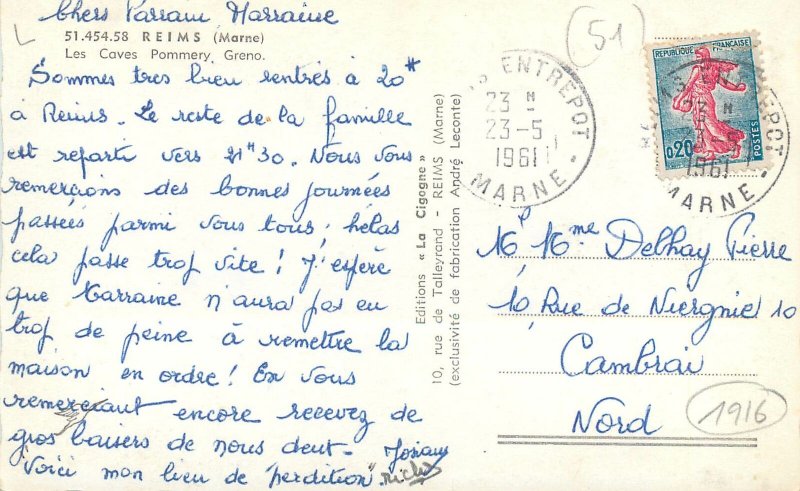 Chers Parrain Marraine
51.454.58 REIMS (Marne)
Les Caves Pommery, Greno.
Sommes tres bien rentrés à 20H
à Reims. Le reste de la famille
est reparti vers 21H30. Nous vous
remercions des bonnes journées
passées parmi vous tous, hélas
cela passe trop vite ! J'espère
que Marraine n'aura pas eu
trop de peine à remettre la
maison en ordre ! En vous
remerciant encore recevez de
gros baisers de nous deux.
Voici mon lieu de "perdition".
Editions « La Cigogne »
10, rue de Talleyrand - REIMS (Marne)
(exclusivité de fabrication André Leconte)
51
ENTREPOT
23 H
23-5
1961
MARNE
REPUBLIQUE FRANÇAISE
0,20
POSTES
ENTREPOT
1961
MARNE
M Mme Delhay Pierre
10 Rue de Niergnie 10
Cambrai
Nord
1916